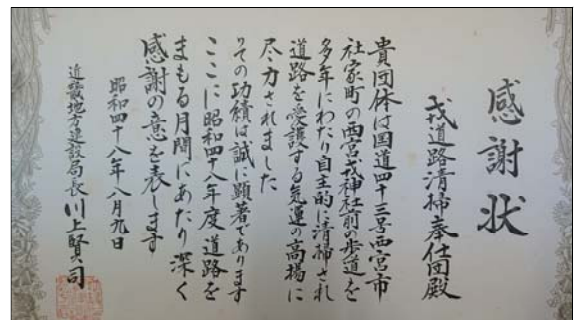 感謝状
戎道路清掃奉仕団殿
貴団体は国道四十三号西宮市
社家町の西宮戎神社前の歩道を
多年にわたり自主的に清掃され
道路を愛護する気運の高揚に
尽力されました
その功績は誠に顕著であります
ここに昭和四十八年度道路を
まもる月間にあたり深く
感謝の意を表します
昭和四十八年八月九日
近畿地方建設局長川上賢司